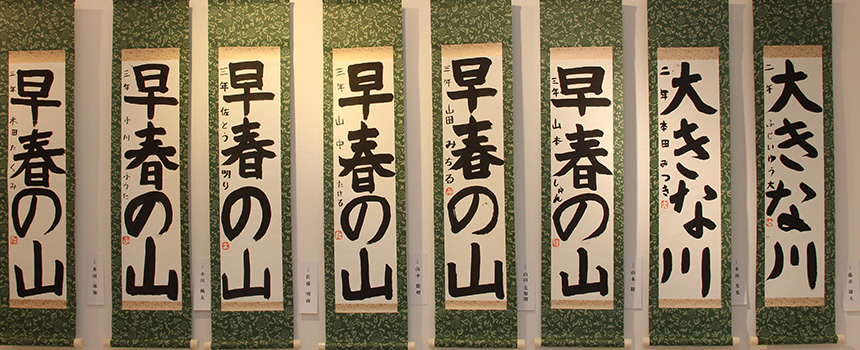 大きな川
二年 ふじいゆう大
大きな川
二年 本田みつき
早春の山
三年 山本しゅん
山本
早春の山
三年 山田みちる
山田
早春の山
三年 山中たける
山中
早春の山
三年 佐とう明り
佐藤
早春の山
三年 小川ふうた
小川
早春の山
三年 本田たくみ